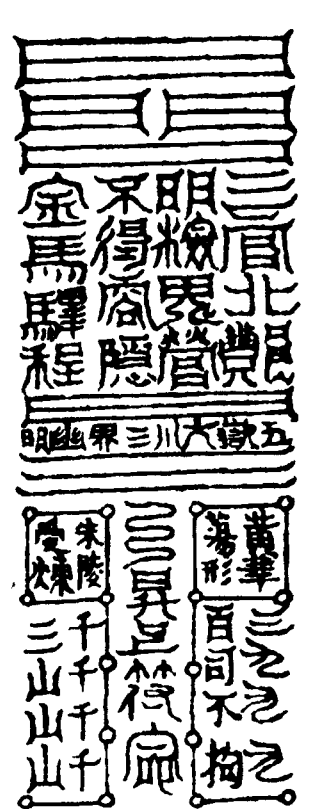 三官北酆
明檢鬼營
不得容隱
金馬驛程
五嶽大川三界幽明
黄華
蕩形
百司不拘
昇
符命
朱陵
受煉
千千千千
三山山山